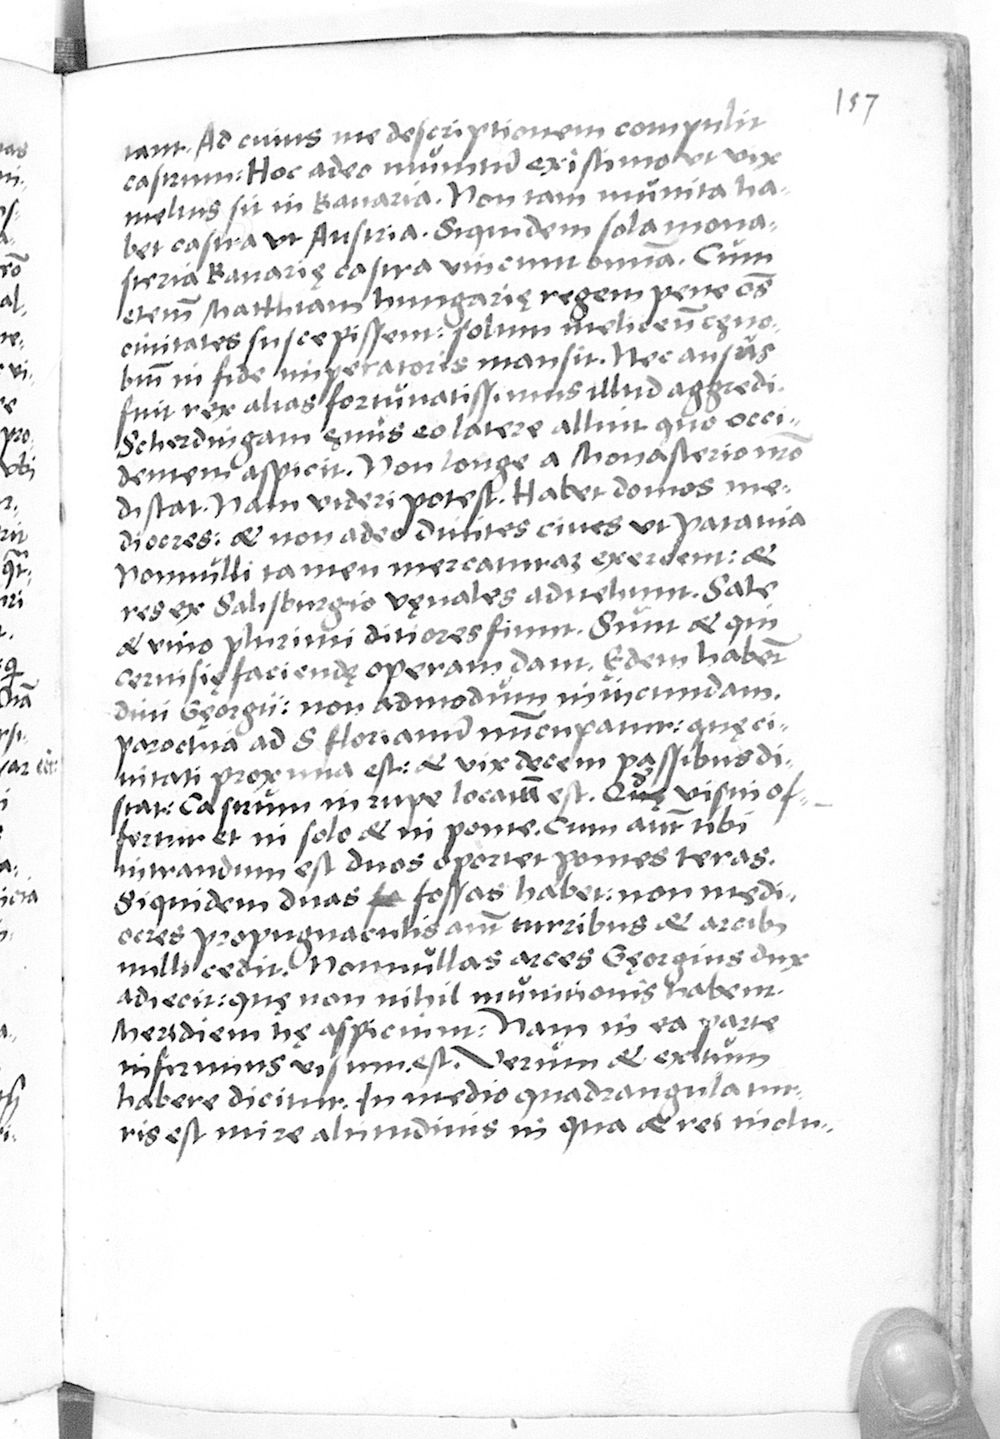 157
tant. Ad cuius me descriptionem compulit
castrum: Hoc adeo munitū existimo vt vix
melius sit in Bauaria. Non tam munita ha-
bet castra vt Austria. Siquidem sola mona-
steria Bauarię castra vincunt omnia. Cum
etenī Mathiam hungarię regem pene oēs
ciuitates suscepissent: solum melicen̄ cęno-
biū in fide imperatoris mansit. Nec ausus
fuit rex alias fortunatissimus illud aggredi.
Scherdingam ęnus eo latere alluit quo occi-
dentem aspicit. Non longe a Monasterio nr̄o
distat. Nam videri potest. Habet domos me-
diocres: & non adeo diuites ciues vt patauia
Nonnulli tamen mercaturaz exercent: &
res ex Salisburgio vęnales aduehunt. Sale
& vino plurimi ditiores fiunt. Sunt & qui
ceruisię faciendę operam dant. Edem habet
diui Gęorgii: non admodum iniucundam.
parochia ad S florianū nūcupatur: quę ci-
uitati proxima est: & vix decem passibus di-
stat: Castrum in rupe locatū est. Quę visui of-
fertur et in solo & in ponte. Cum aut̄ tibi
intrandum est duos oportet pontes teras.
Siquidem duas fossas habet: non medi-
ocres propugnaculis aut̄ turribus & arcib
nulli cedit. Nonnullas arces Gęorgius dux
adiecit: quę non nihil munitionis habent.
Meridiem hę aspiciunt: Nam in ea parte
infirmius visum est. Verum & exitum
habere dicitur. In medio quadrangula tur-
ris est mire altitudinis in qua & rei inclu-